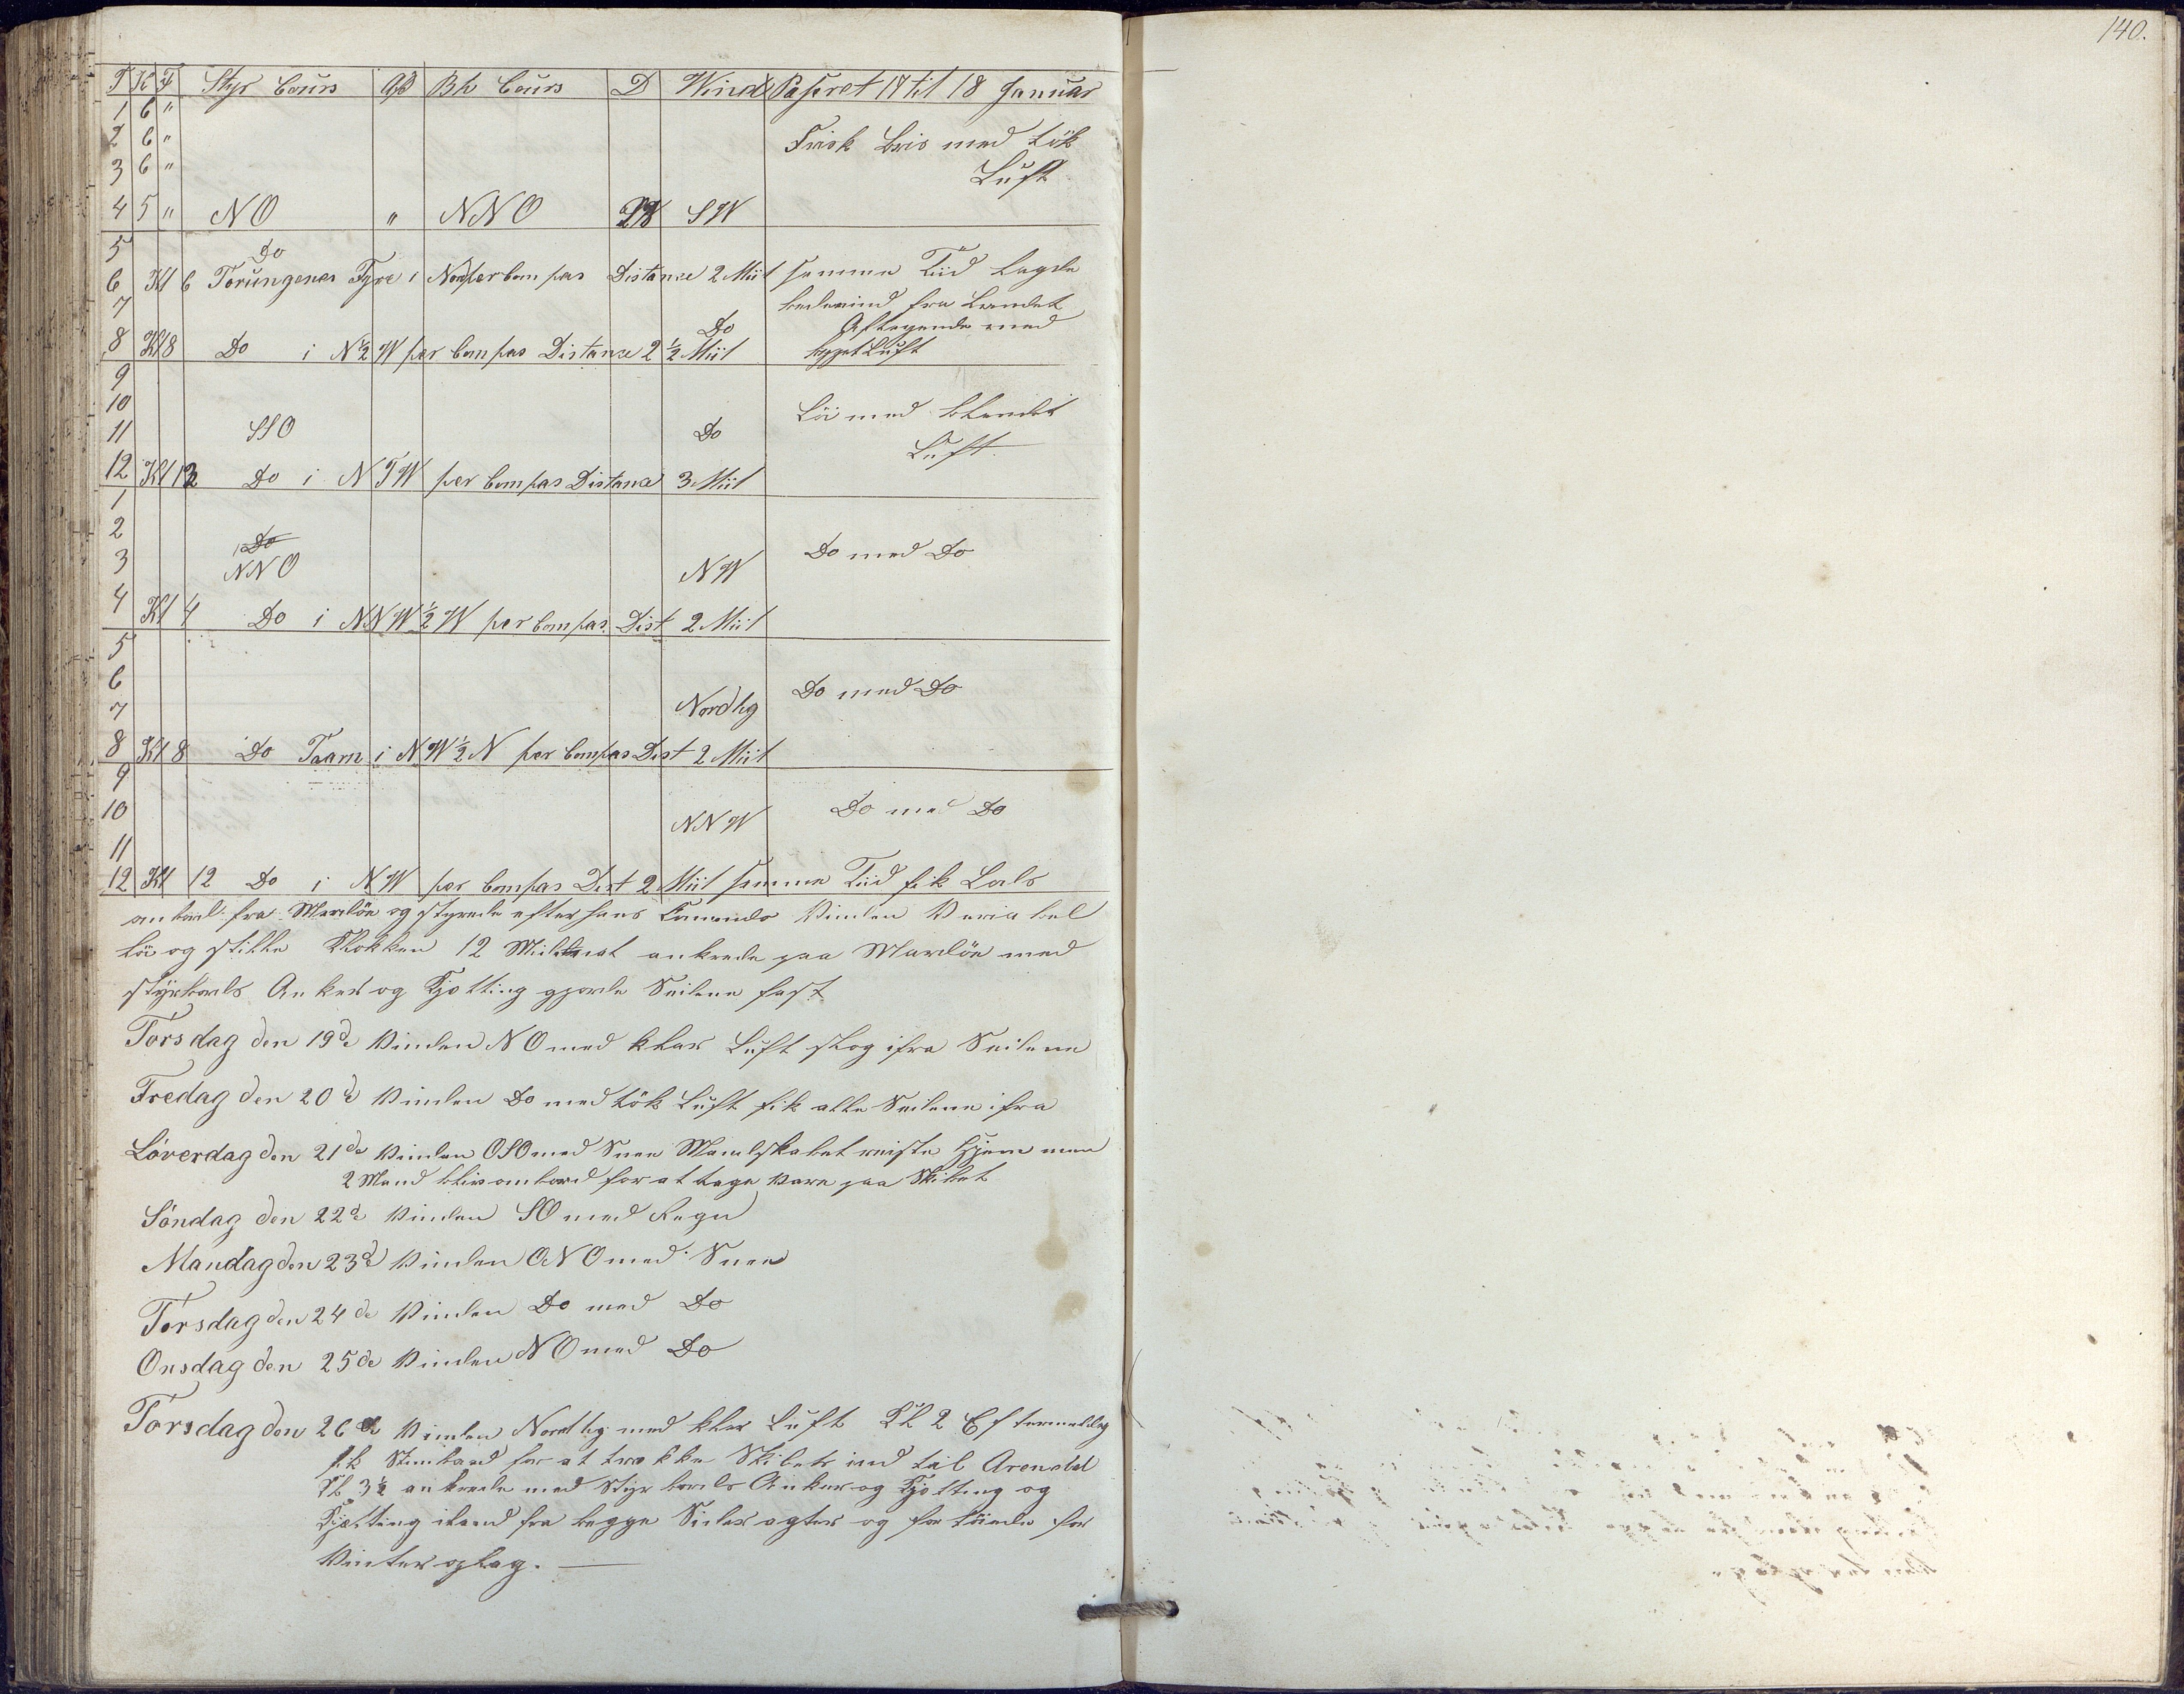 140.
T K F Styr Cours Afd Bh Cours D Wind Paseret 17 til 18 Januar
1 6 "
2 6 " Frisk Bris med tök
3 6 " Luft
4 5 " NO " NNO SW
5 Do
6 Kl 6 Torungenes Fyre i Nord per Compas Distance 2 Miil samme Tiid lagde
7 bedevind fra Landet
Do Aftagende med
8 Kl 8 Do i N 1/2 W per Compas Distance 2 1/2 Miil Luft
9
10 Löi med blandet
11 SSO Do Luft
12 Kl 12 Do i N T W per Compas Distance 3 Miil
1
2 Do
3 NNO NW Do med Do
4 Kl 4 Do i NNW 1/2 W per Compas Dist 2 Miil
5
6 Do med Do
7 Nordlig
8 Kl 8 Do Taarn i NW 1/2 N per Compas Dist 2 Miil
9
10 NNW Do med Do
11
12 Kl 12 Do i NW per Compas Dist 2 Miil samme Tiid fik Lods
ombord fra Merdöe og styrede efter hans Comando Vinden Variabel
Löi og stille Klokken 12 Midnat ankrede paa Merdöe med
styrbords Anker og Kjetting gjorde Seilene fast
Torsdag den 19de Vinden NO med klar Luft slog ifra Seilene
Fredag den 20de Vinden Do med tök Luft fik alle Seilene ifra
Löverdag den 21de Vinden OSO med Snee Mandskabet reiste Hjem men
2 Mand blir ombord for at tage vare paa Skibet
Söndag den 22de Vinden SO med Regn
Mandag den 23de Vinden ONO med Snee
Tirsdag den 24de Vinden Do med Do
Onsdag den 25de Vinden NO med Do
Torsdag den 26de Vinden Nordlig med klar Luft Kl 2 Eftermiddag
fik for at trække Skibet ind til Arendal
Kl 3 1/2 ankrede med Styrbords Anker og Kjetting og
Kjetting iland fra begge Sider agter og for
Vinteroplag.